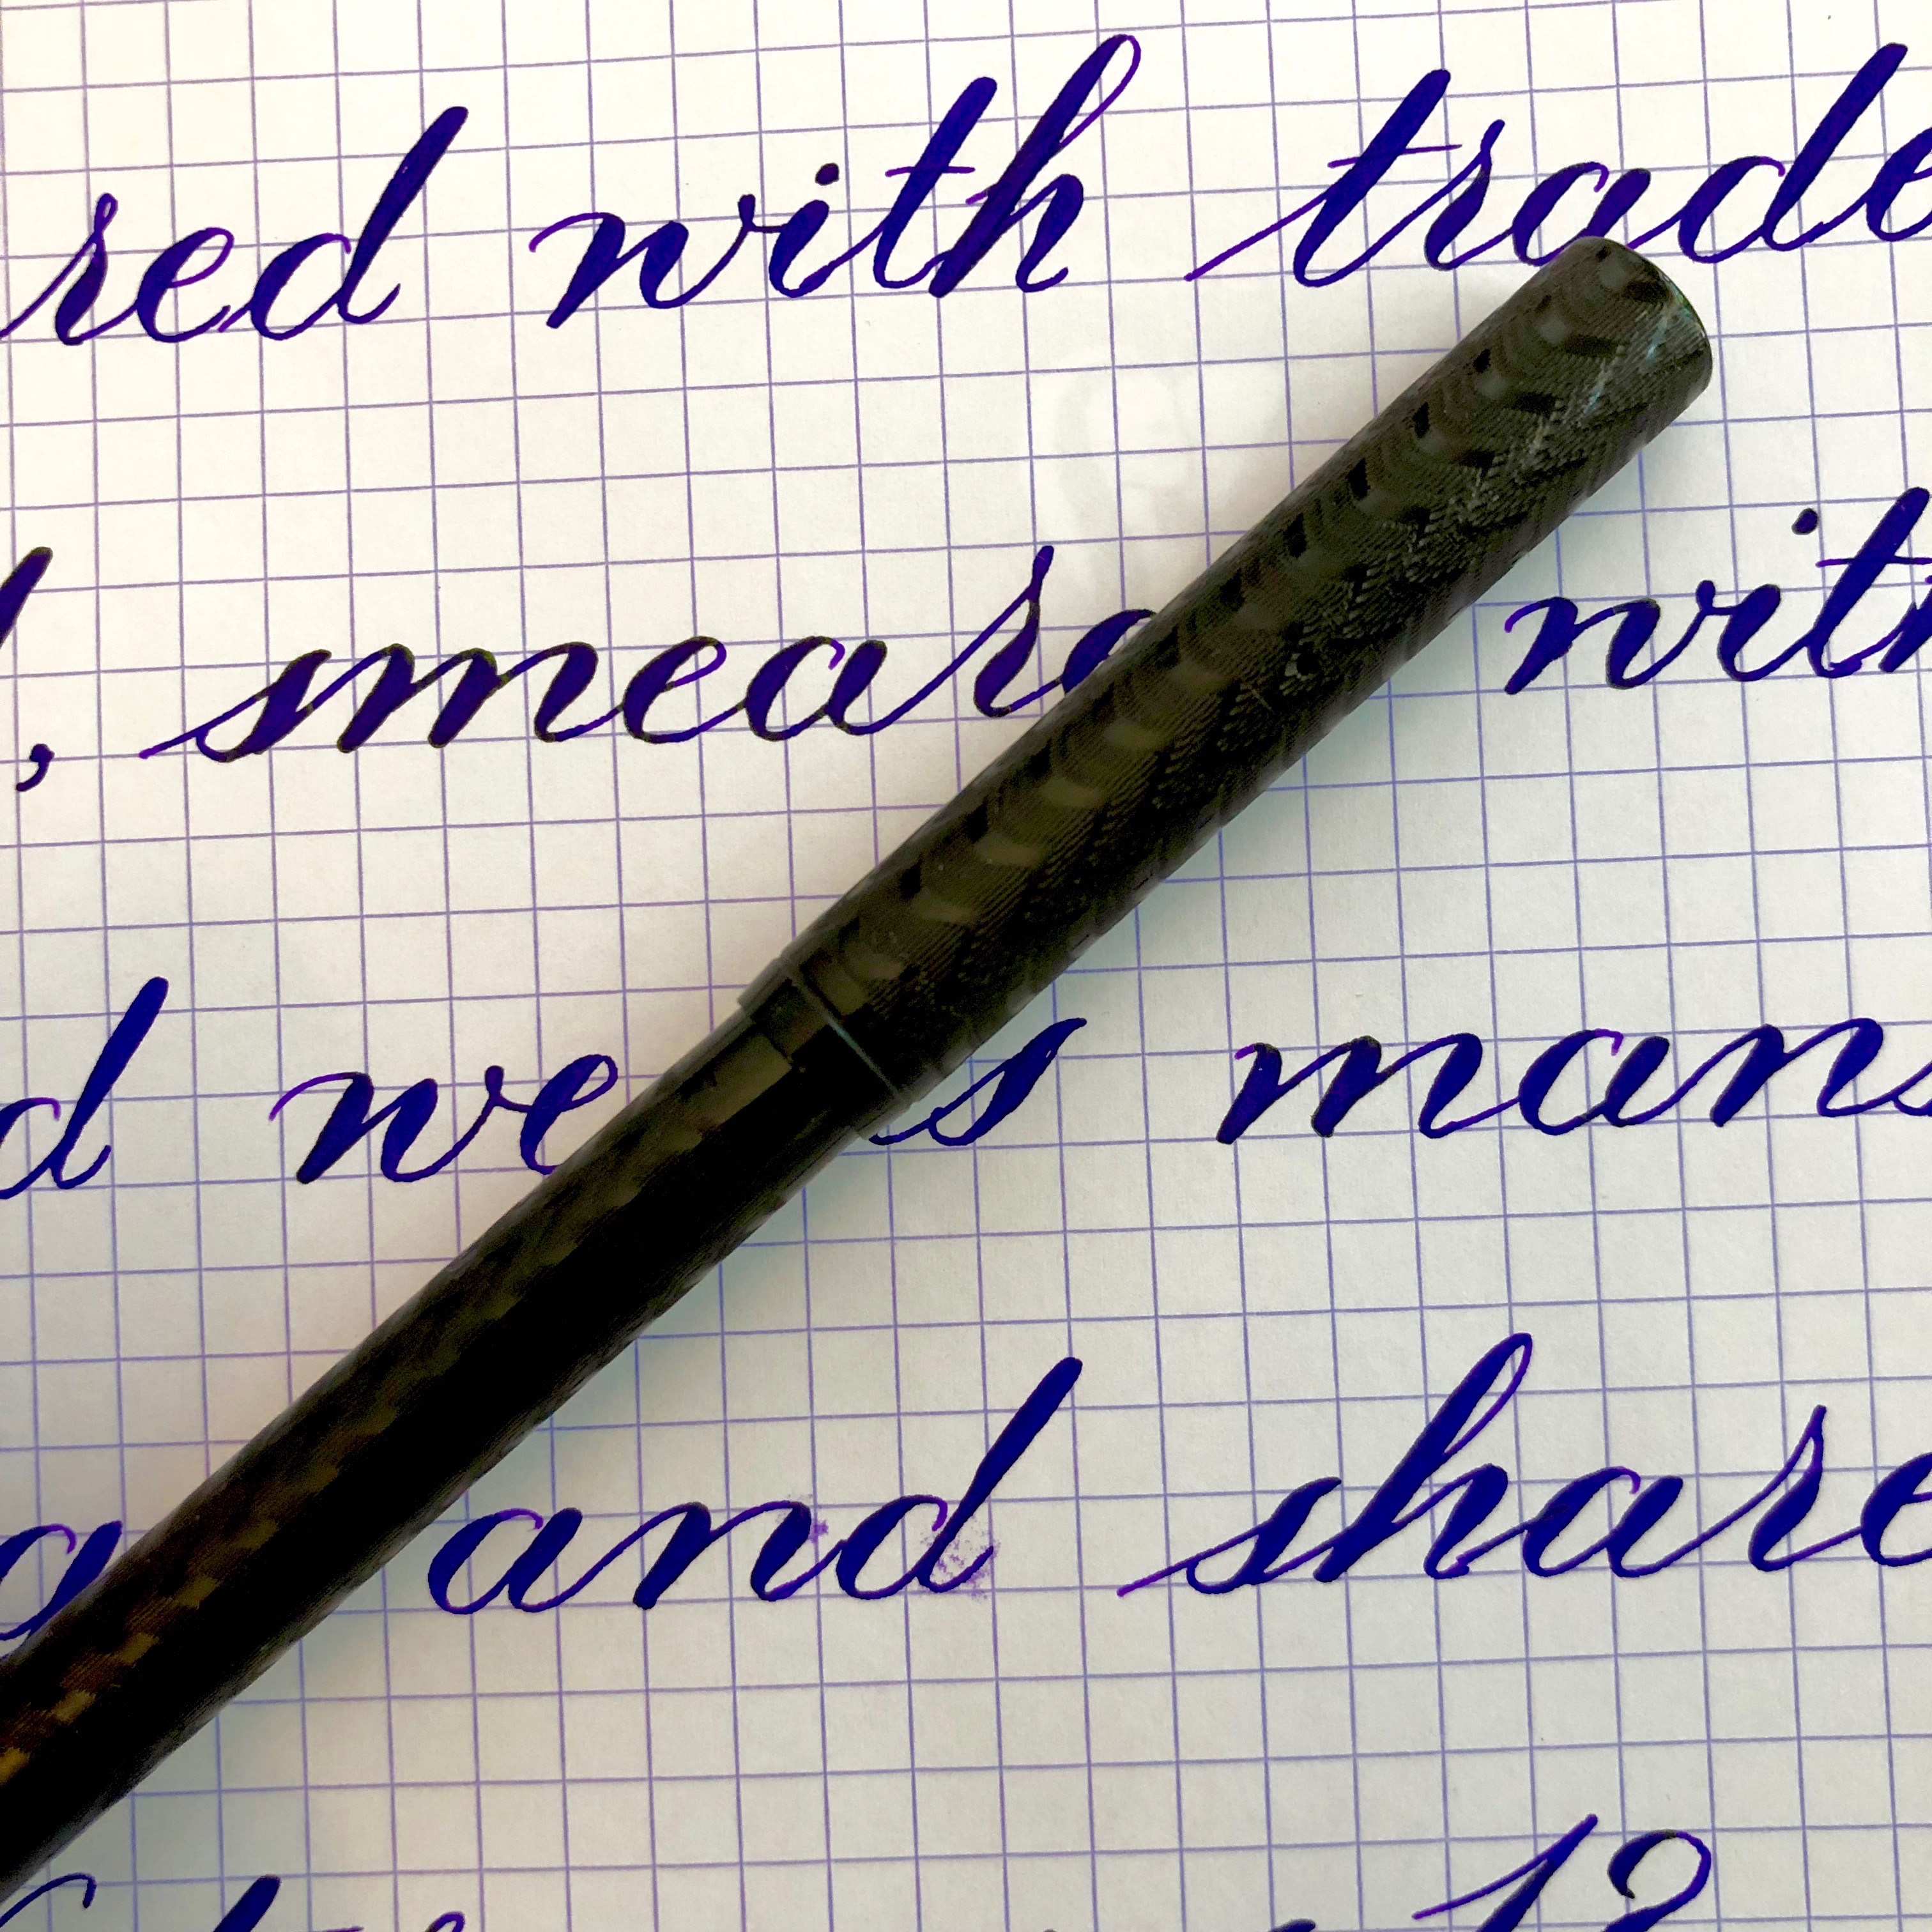 red with trade
, smeare with
d we s mans
g and share